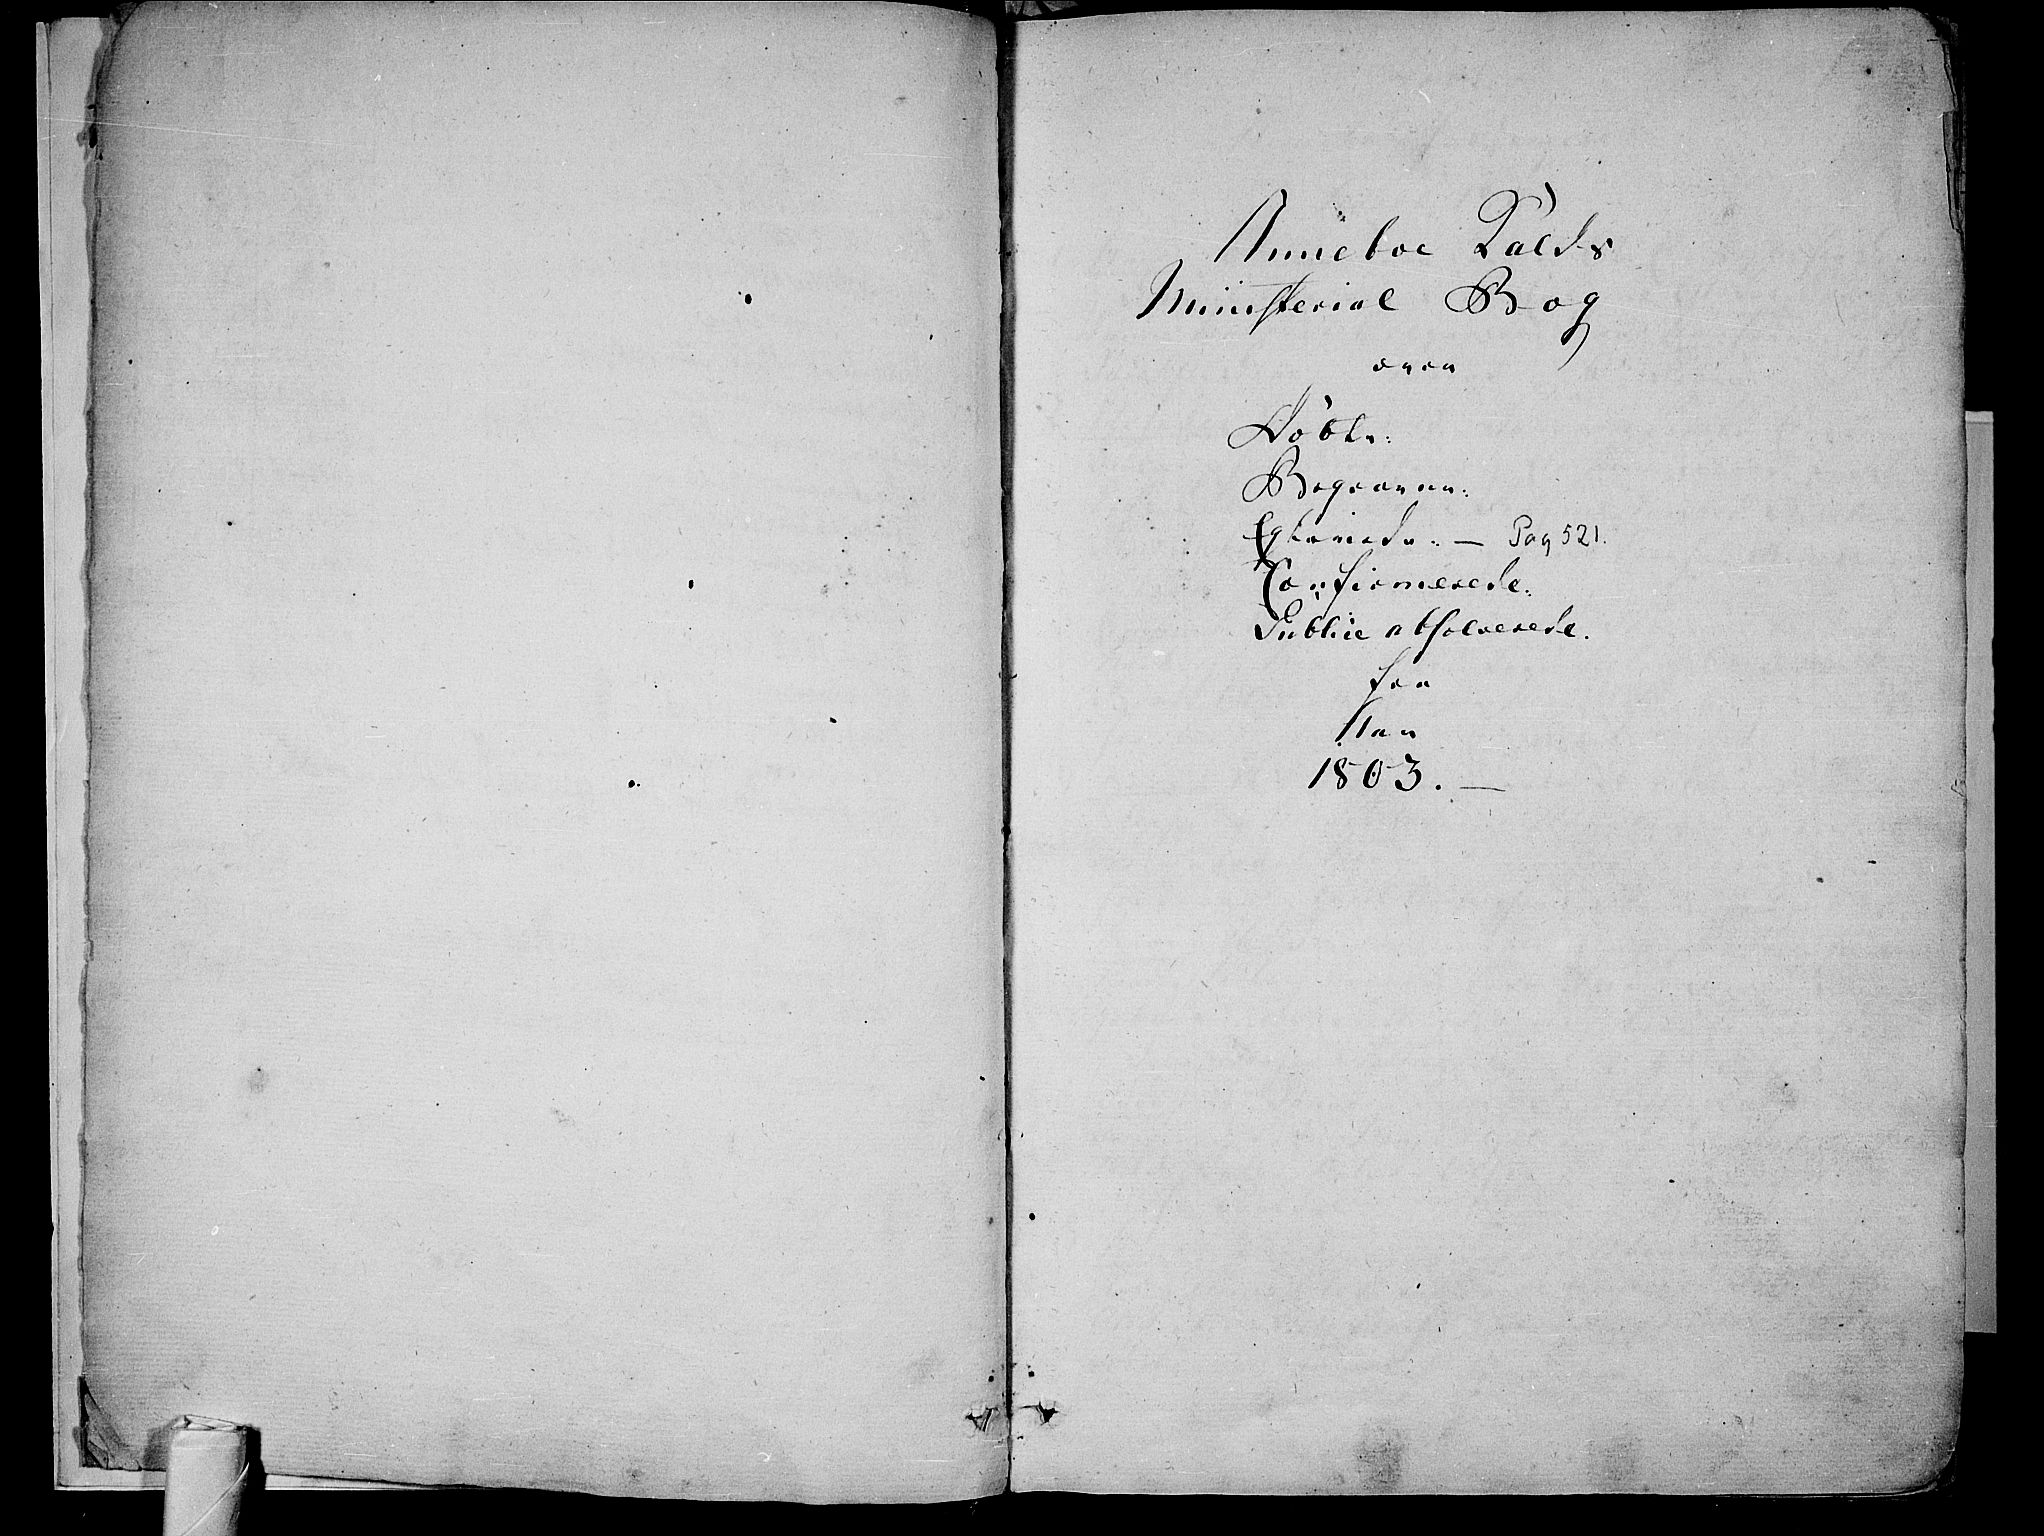 Anneboe Kalds
Ministerial Bog
over
Döbte:
Begravne:
Egteviede: — Pag 521.
Confirmerede:
Publice absolverede.
fra
Aar
1803. —